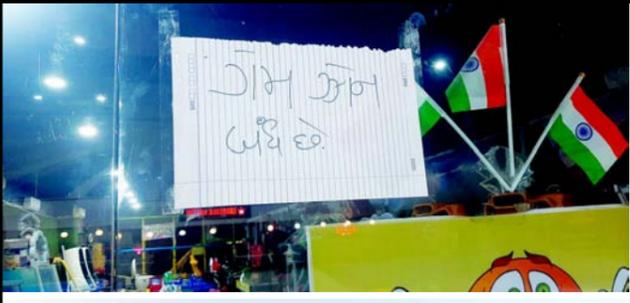 ગેમ ઝોન
બંધ છે.